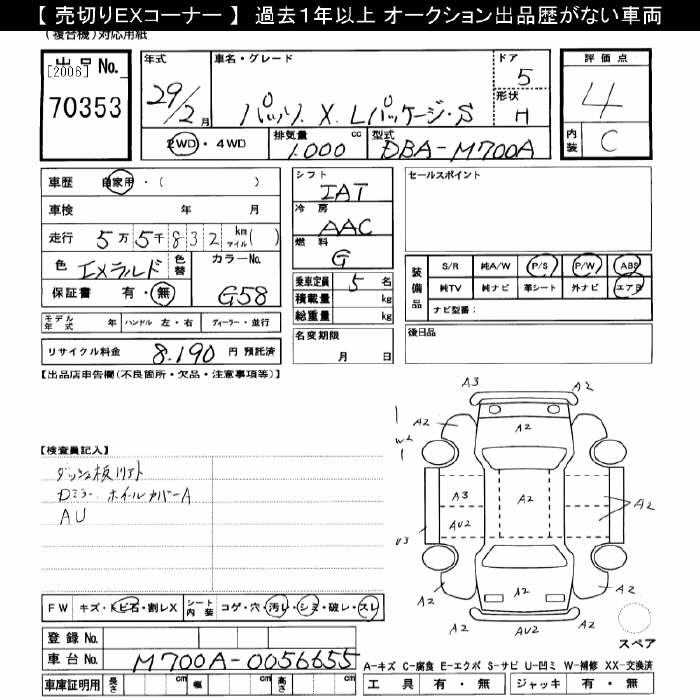 【 売切りEXコーナー 】 過去１年以上 オークション出品歴がない車両
(複合機)対応用紙
出品 No.
[2006]
70353
年式
29/2月
車名・グレード
パッソ X Lパッケージ・S
ドア
5
形状
H
評価点
4
内装
C
2WD・4WD
排気量
1.000 cc
型式
DBA-M700A
車歴 自家用・( )
車検 年 月
走行 5万5千832 km マイル( )
色 エメラルド 色替
カラーNo.
G58
保証書 有・無
シフト
IAT
冷房
AAC
燃料
G
乗車定員 5 名
積載量 kg
総重量 kg
セールスポイント
装備品
S/R 純A/W P/S P/W ABS
純TV 純ナビ 革シート 外ナビ エアB
ナビ型番：
モデル年式 年 ハンドル 左・右 ディーラー・並行
リサイクル料金 8.190 円 預託済
名変期限
月 日
後日品
【出品店申告欄(不良箇所・欠品・注意事項等)】
【検査員記入】
ダッシュ板リアト
Dミラー ホイールカバーA
AU
A3
A2
A2
A2
A2
W2
A3
A2
A2
AU2
U3
A2
A2
A2
A2
スペア
FW キズ・トビ石・割レX
シート内装 コゲ・穴・汚レ・シミ・破レ・スレ
登録 No.
車台 No. M700A-0056655
車庫証明用 長さ cm 幅 cm 高さ cm
A-キズ C-腐食 E-エクボ S-サビ U-凹ミ W-補修 XX-交換済
工具 有・無 ジャッキ 有・無